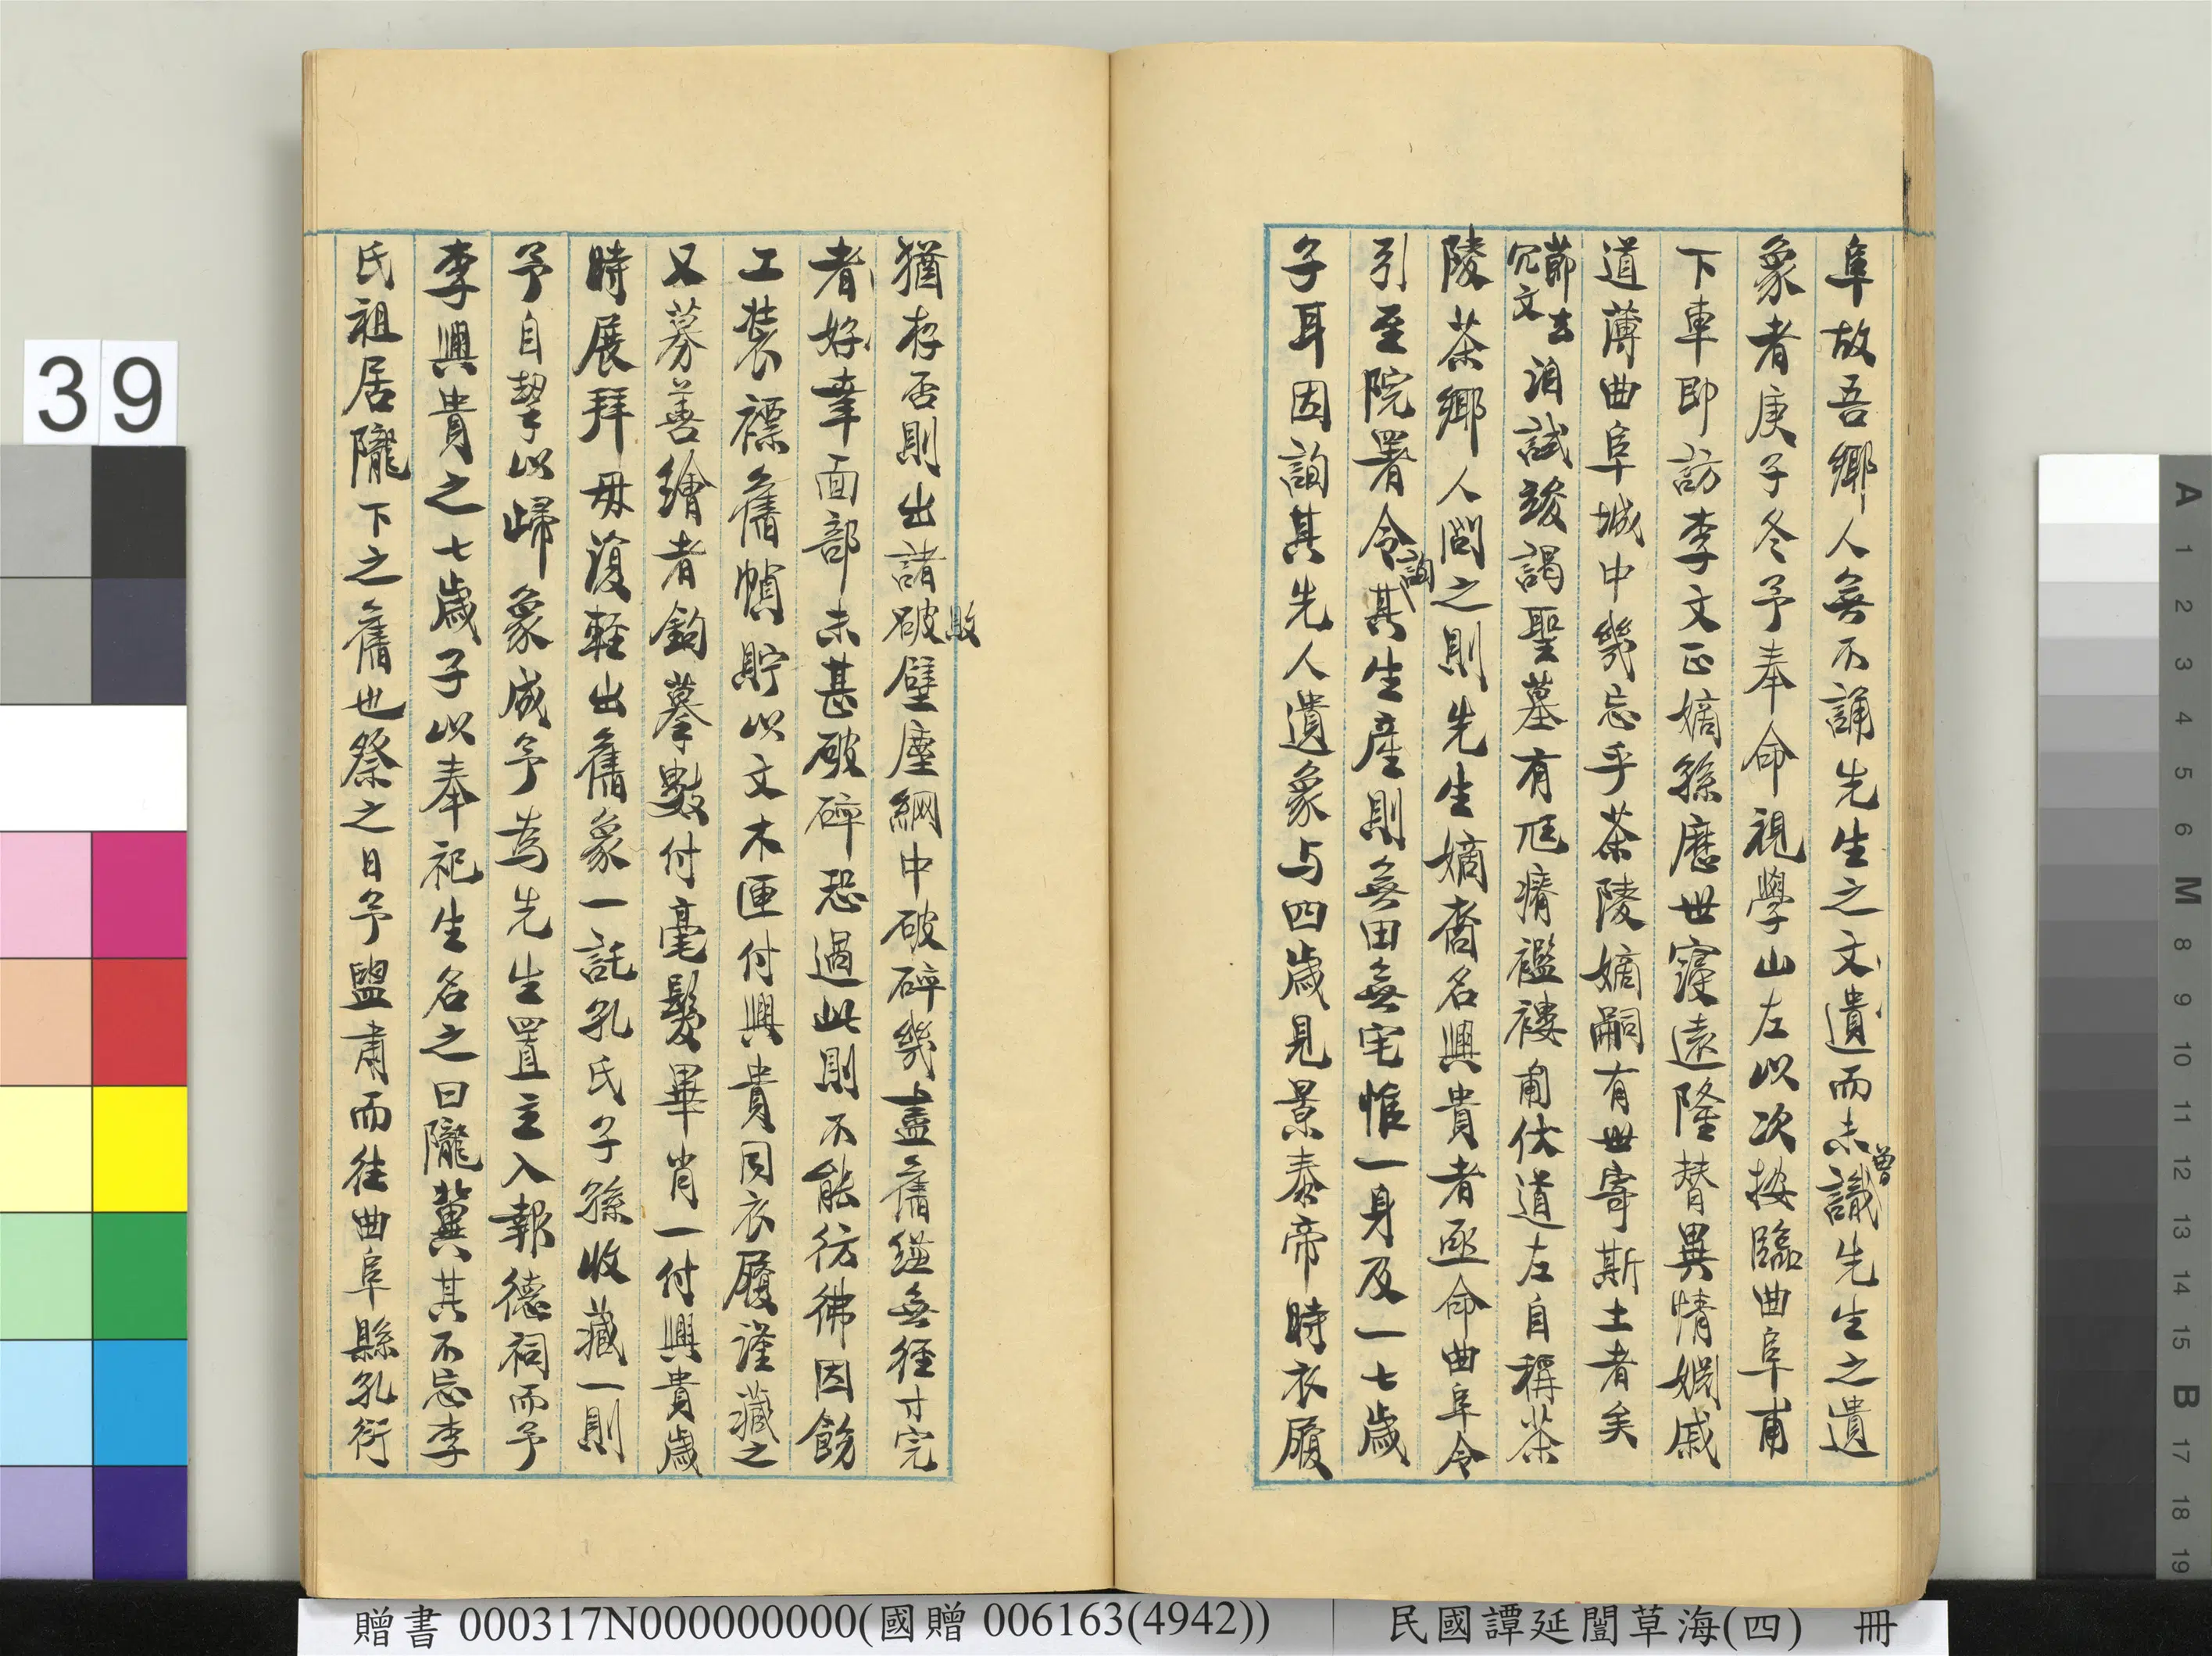 阜故吾鄉人無不誦先生之文遺而未曾識先生之遺
象者庚子冬予奉命視學山左以次按臨曲阜甫
下車即訪李文正嫡孫歷世寖遠隆替異情姻戚
道薄曲阜城中幾忘乎茶陵嫡嗣有世寄斯土者矣
節去冗文 洎試竣謁聖墓有尪瘠襤褸甫伏道左自稱茶
陵茶鄉人問之則先生嫡裔名興貴者亟命曲阜令
引至院署令詢其生產則無田無宅惟一身及一七歲
子耳因詢其先人遺象与四歲見景泰帝時衣履
猶存否則出諸破敗壁塵網中破碎幾盡舊縑無徑寸完
者好幸面部未甚破碎恐過此則不能彷彿因飭
工裝褾舊幀貯以文木匣付興貴同衣履謹藏之
又募善繪者鈎摹數付毫髮畢肖一付興貴歲
時展拜毋復輕出舊象一託孔氏子孫收藏一則
予自挈以歸象成予為先生置主入報德祠而予
李興貴之七歲子以奉祀生名之曰隴冀其不忘李
氏祖居隴下之舊也祭之日予盥肅而往曲阜縣孔衍
39
贈書 000317N000000000(國贈 006163(4942))
民國譚延闓草海(四) 冊
A 1 2 3 4 5 6 M 8 9 10 11 12 13 14 15 B 17 18 19